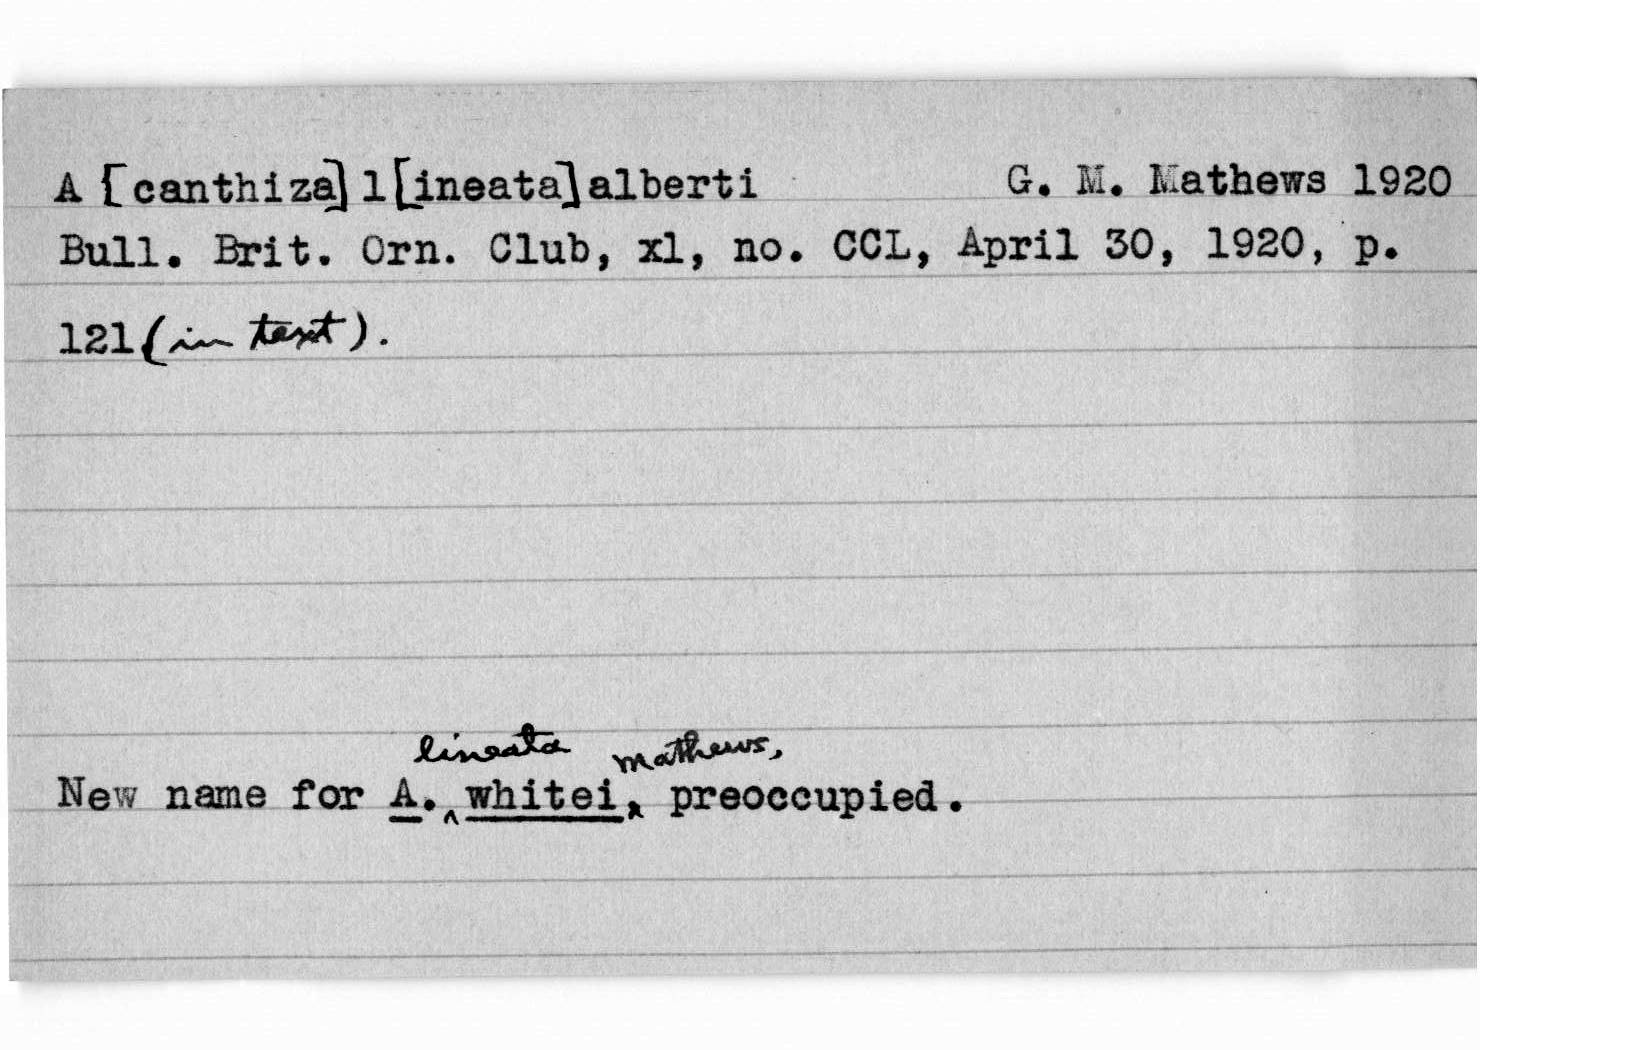 A [canthiza] l[ineata]alberti G. M. Mathews 1920
Bull. Brit. Orn. Club, xl, no. CCL, April 30, 1920, p.
121(in text).
lineata mathews,
New name for A. ^ whitei, preoccupied.